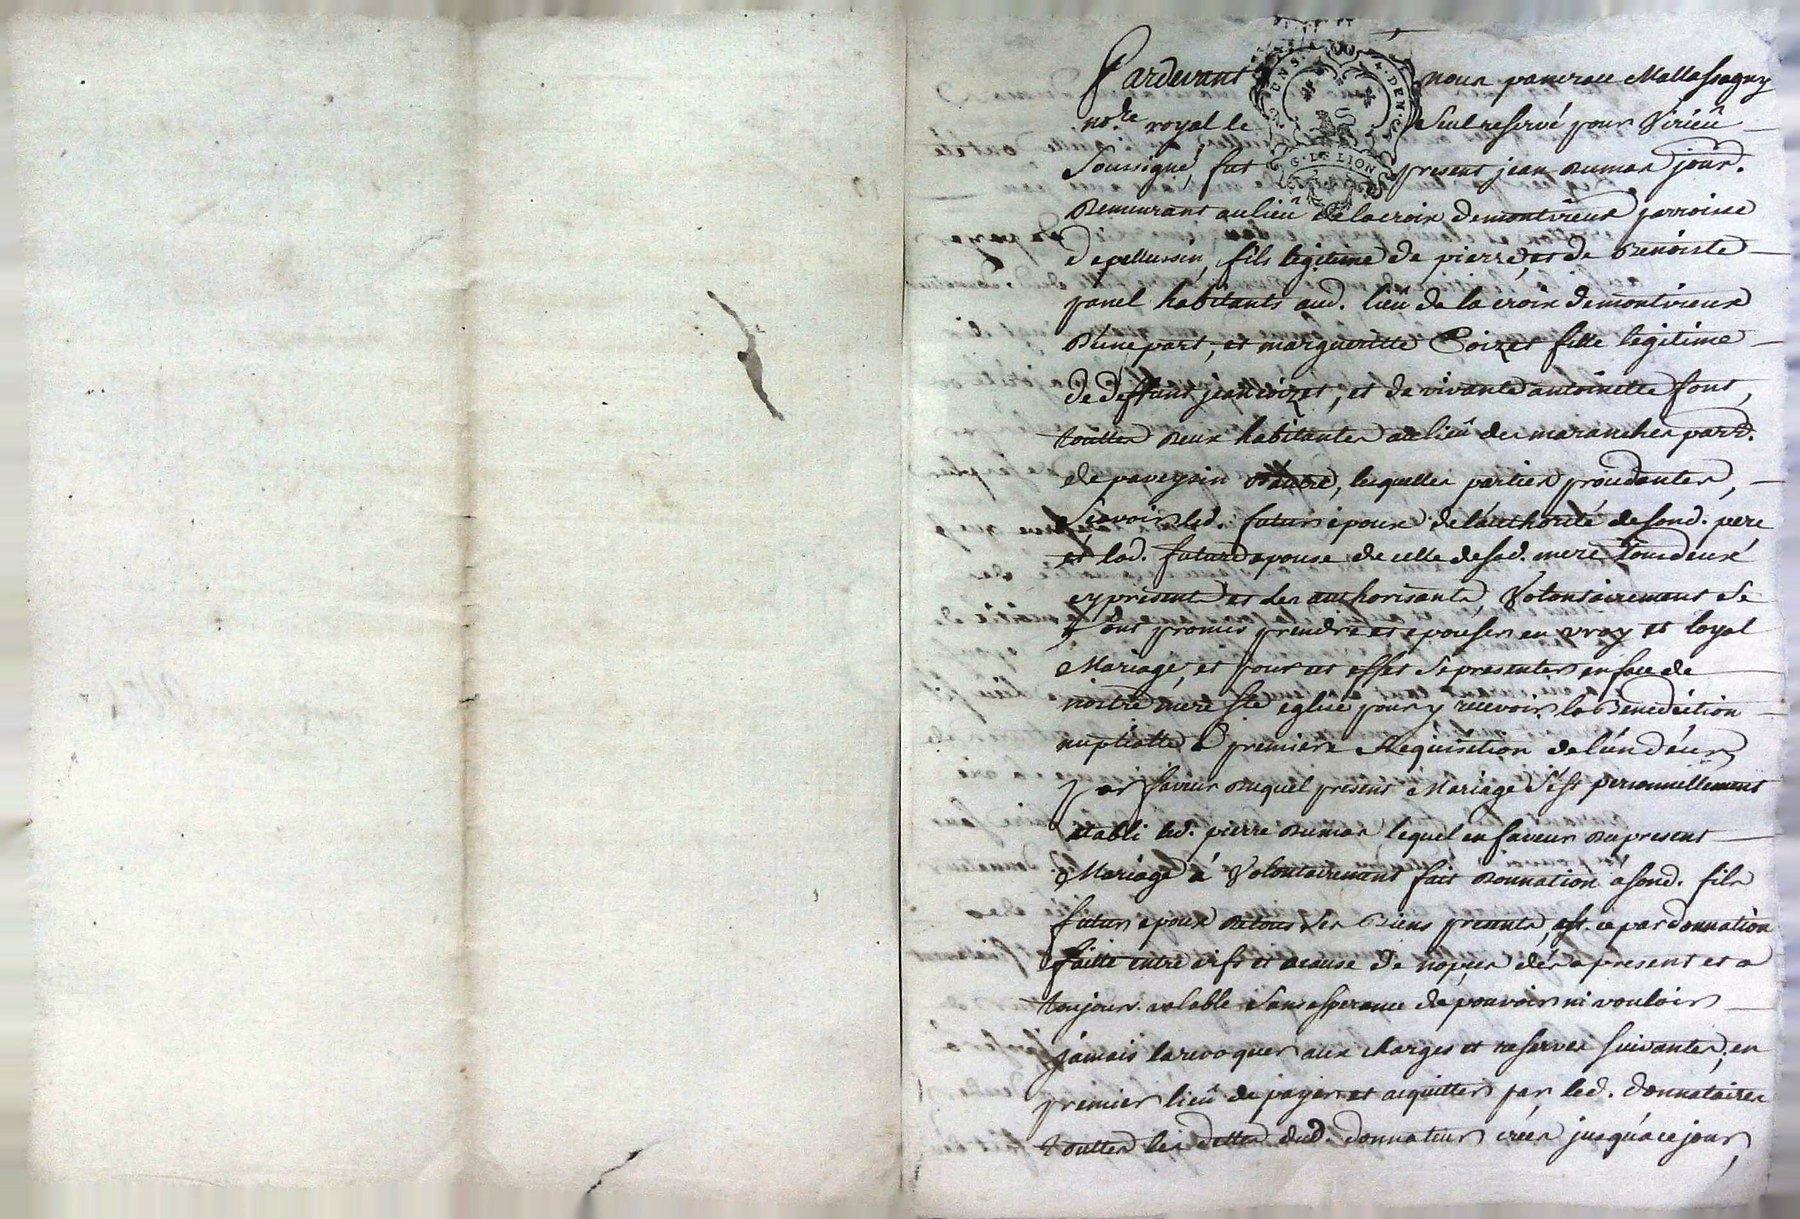 Pardevant nous pancrace Mallassagny
no.re royal le Seul reservé pour Virieû
Soussigné, fut present jean dumas jour.
G. DE LION
demeurant au lieû de la croix de montvieux parroisse
de pellussin, fils legitime de pierre, et de Benoiste
panel habitants aud. lieû de la croix de montvieux
d'une part, et margueritte Coizet fille legitime
de deffunt jean coizet, et de vivante antoinette font,
touttes deux habitantes au lieû des maranches parr.
de paveysin d'autre, lesquelles parties proceddantes,
Sçavoir led. futur epoux de l'authorité de sond. pere
et lad. future epouse de celle de sad. mere tous deux
cy presents et les authorisants, Volontairement se
sont promis prendre et epouser en vray et loyal
Mariage, et pour cet effet se presenter en face de
nôitre mere Ste eglise pour y recevoir la Benediction
nuptialle à premiere Requisition de l'un d'eux
en faveur duquel present Mariage s'est personnellement
etabli led. pierre dumas lequel en faveur du present
Mariage à Volontairement fait donnation à sond. fils
futur epoux de tous ses Biens presents, est ce par donnation
faitte entre vifs et acause de nopces dés a present et a
toujours valable sans esperance de pouvoir ni vouloir
jamais la revoquer aux charges et reserves suivantes, en
premier lieû de payer et acquitter par led. donnataire
touttes les dettes dud. donnateur créés jusqu'à ce jour,